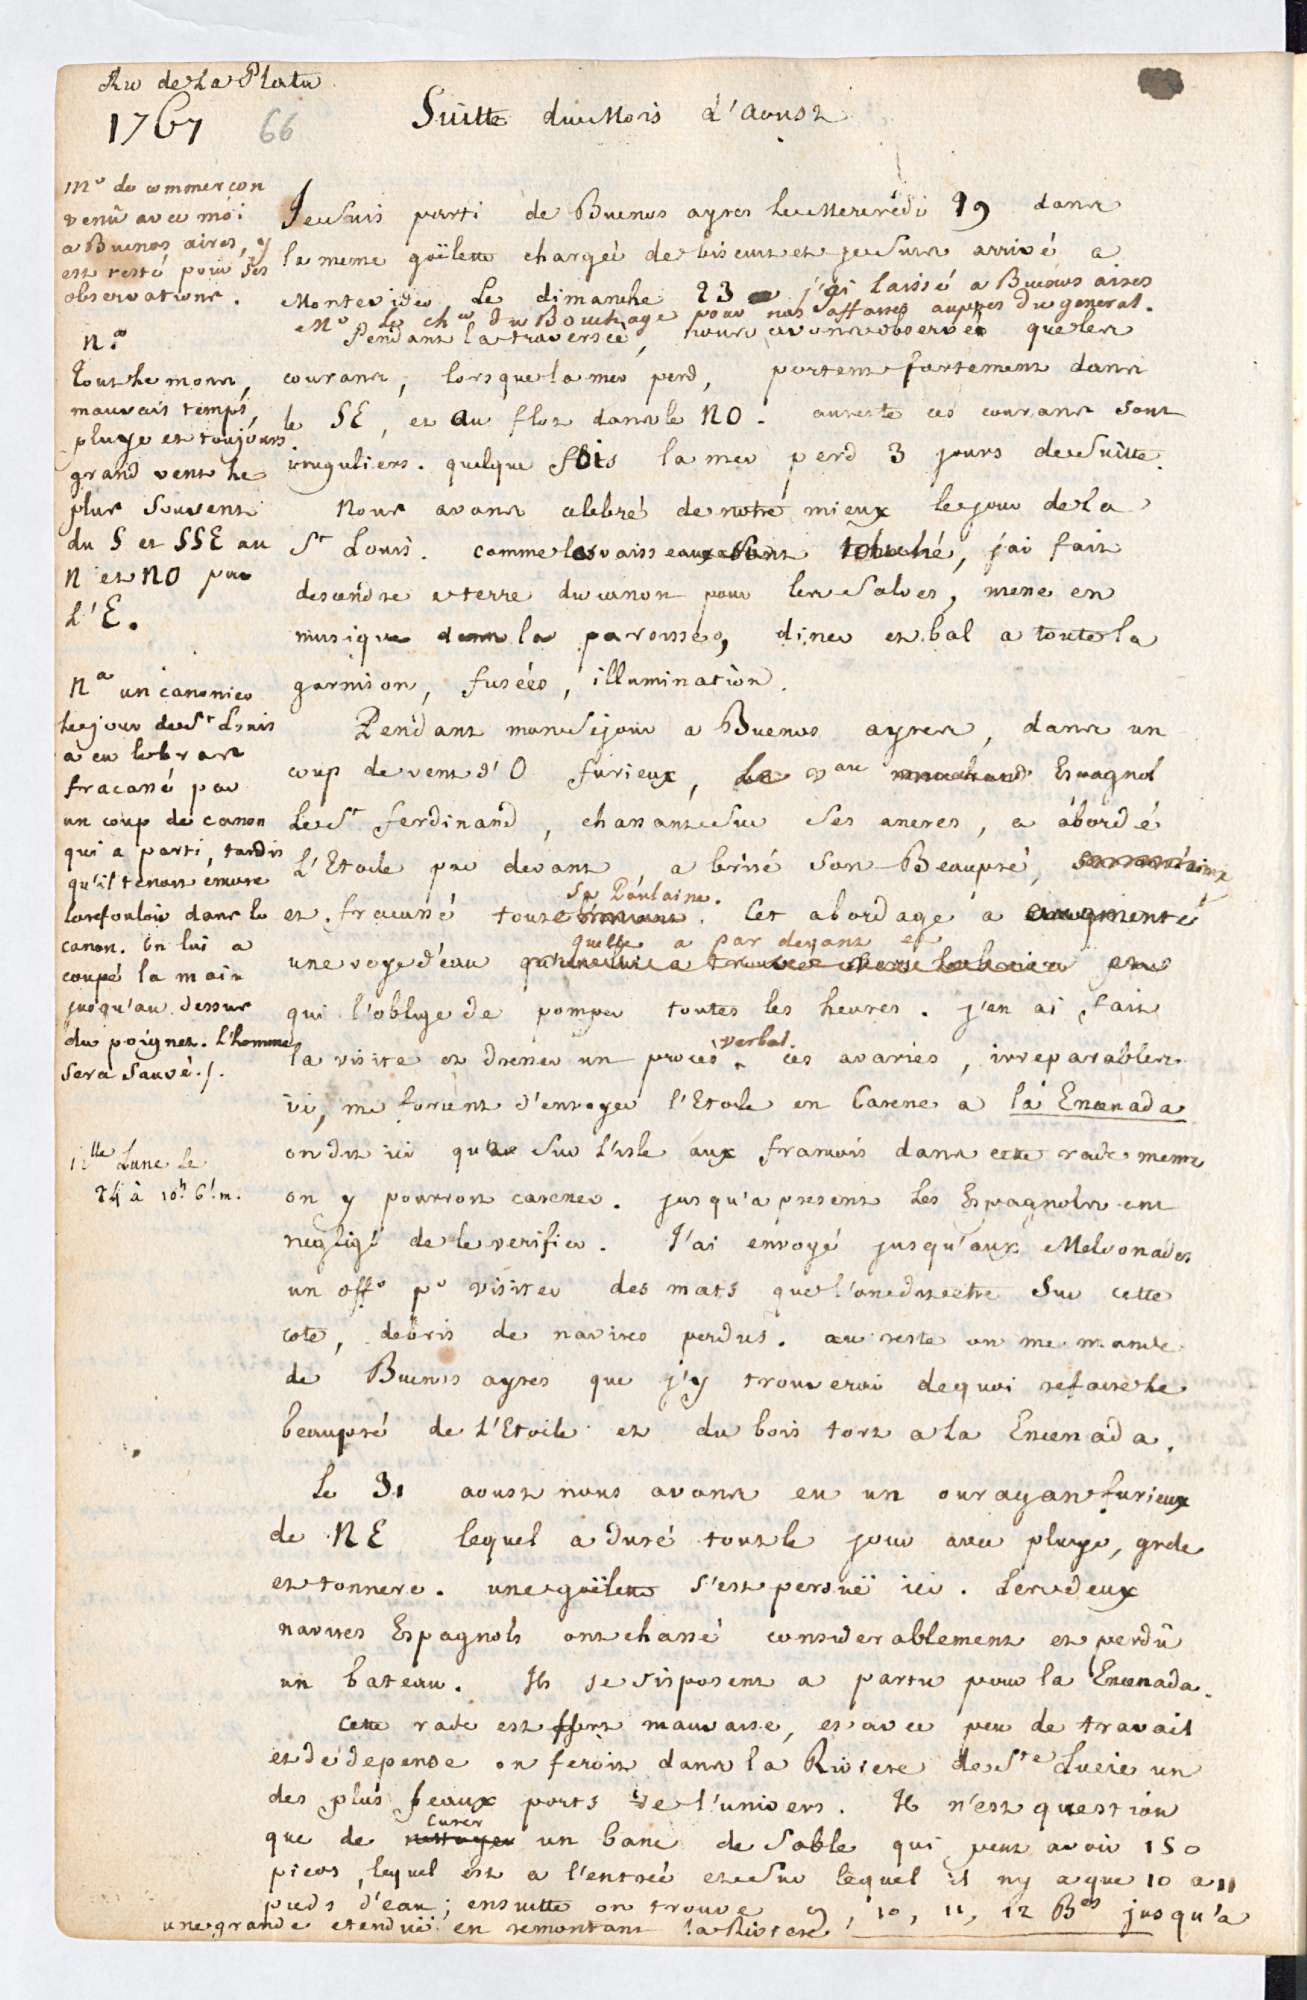 Riv. de La Plata
1767 66
Suitte du Mois d'Aoust
Mr de commerçon
venû avec moi
a Buenos aires, y
est resté pour ses
observations.
Na
tout le mois,
mauvais temps,
pluye et toujours
grand vent le
plus souvent
du S et SSE au
N et NO par
L'E.
Na un canonier
le jour de St Louis
a eu le bras
fracassé par
un coup de canon
qui a parti, tandis
qu'il tenoit encore
le refouloir dans le
canon. On lui a
coupé la main
jusqu'au dessus
du poignet. L'homme
sera sauvé./.
lle Lune le
24 à 10h 6' m.
Je suis parti de Buenos ayres le Mercredi 19 dans
la meme goëlette chargée de biscuit et je suis arrivé a
Montevideo le dimanche 23 j'ai laissé a Buenos aires
Mr le cher du Bouchage pour nos affaires aupres du general.
Pendant la traversée, nous avons observé que les
courans, lorsque la mer perd, portent fortement dans
le SE, et au flot dans le NO. au reste ces courans sont
irreguliers. quelque fois la mer perd 3 jours de suitte.
Nous avons celebré de notre mieux le jour de la
St Louis. comme les vaisseaux touché, j'ai fait
descendre a terre du canon pour les salves, messe en
musique dans la paroisse, diner et bal a toute la
garnison, fusées, illumination.
Pendant mon sejour a Buenos ayres, dans un
coup de vent d'O furieux, Le vau marchand Espagnol
Le St ferdinand, chassant sur ses ancres, a abordé
L'Etoile par devant, a brisé son Beaupré,
sa Poulaine.
et fracassé toute. Cet abordage a augmenté
quelle a par devant et
une voye d'eau
qui l'oblige de pomper toutes les heures. j'en ai fait
verbal.
la visite et dresser un procès. Ces avaries, irreparables
ici, me forcent d'envoyer l'Etoile en Carene a la Encenada
on dit ici que sur l'isle aux francois dans cette rade meme
on y pourroit carener. jusqu'a present Les Espagnols ont
negligé de le verifier. J'ai envoyé jusqu'aux Maldonades
un offr pr visiter des mats que l'on dit etre sur cette
cote, debris de navires perdus. au reste on me mande
de Buenos ayres que j'y trouverai de quoi refaire le
beaupré de L'Etoile et du bois tors a la Encenada.
le 31 aoust nous avons eu un ouragan furieux
de NE lequel a duré tout le jour avec pluye, grele
et tonnere. une goëlette s'est perduë ici. Les deux
navires Espagnols ont chassé considerablement et perdû
un bateau. Ils se disposent a partir pour la Encenada.
Cette rade est fort mauvaise, et avec peu de travail
et de depense on feroit dans la Riviere de Ste Lucie un
des plus beaux ports de l'univers. Il n'est question
curer
que de nettoyer un banc de sable qui peut avoir 150
pieds, lequel est a l'entrée et sur lequel il n'y a que 10 a 11
pieds d'eau; ensuitte on trouve 9, 10, 11, 12 Bes jusqu'a
une grande etenduë en remontant la Riviere